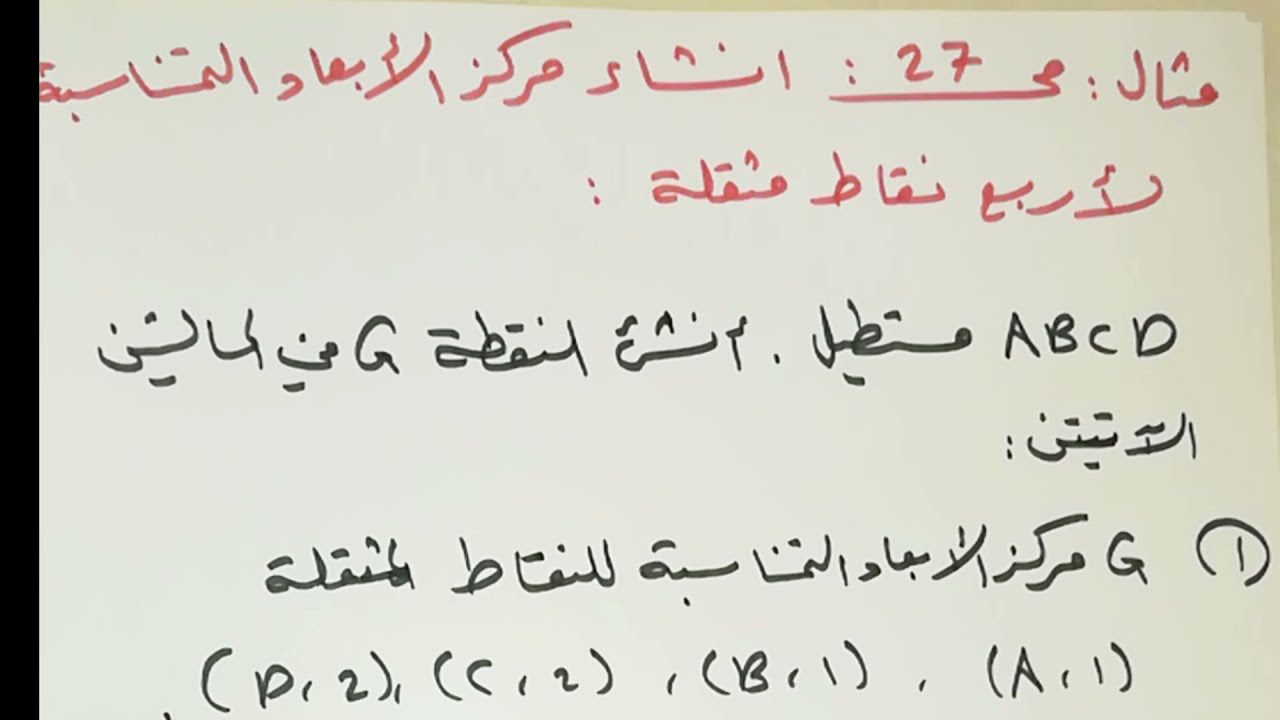 مثال: صـ 27: انشاء مركز الأبعاد المتناسبة
لأربع نقاط مثقلة :
ABCD مستطيل . أنشئ النقطة G في الحالتين
الآتيتين:
① G مركز الابعاد المتناسبة للنقاط المثقلة
(A, 1) , (B, 1) , (C, 2) , (D, 2)